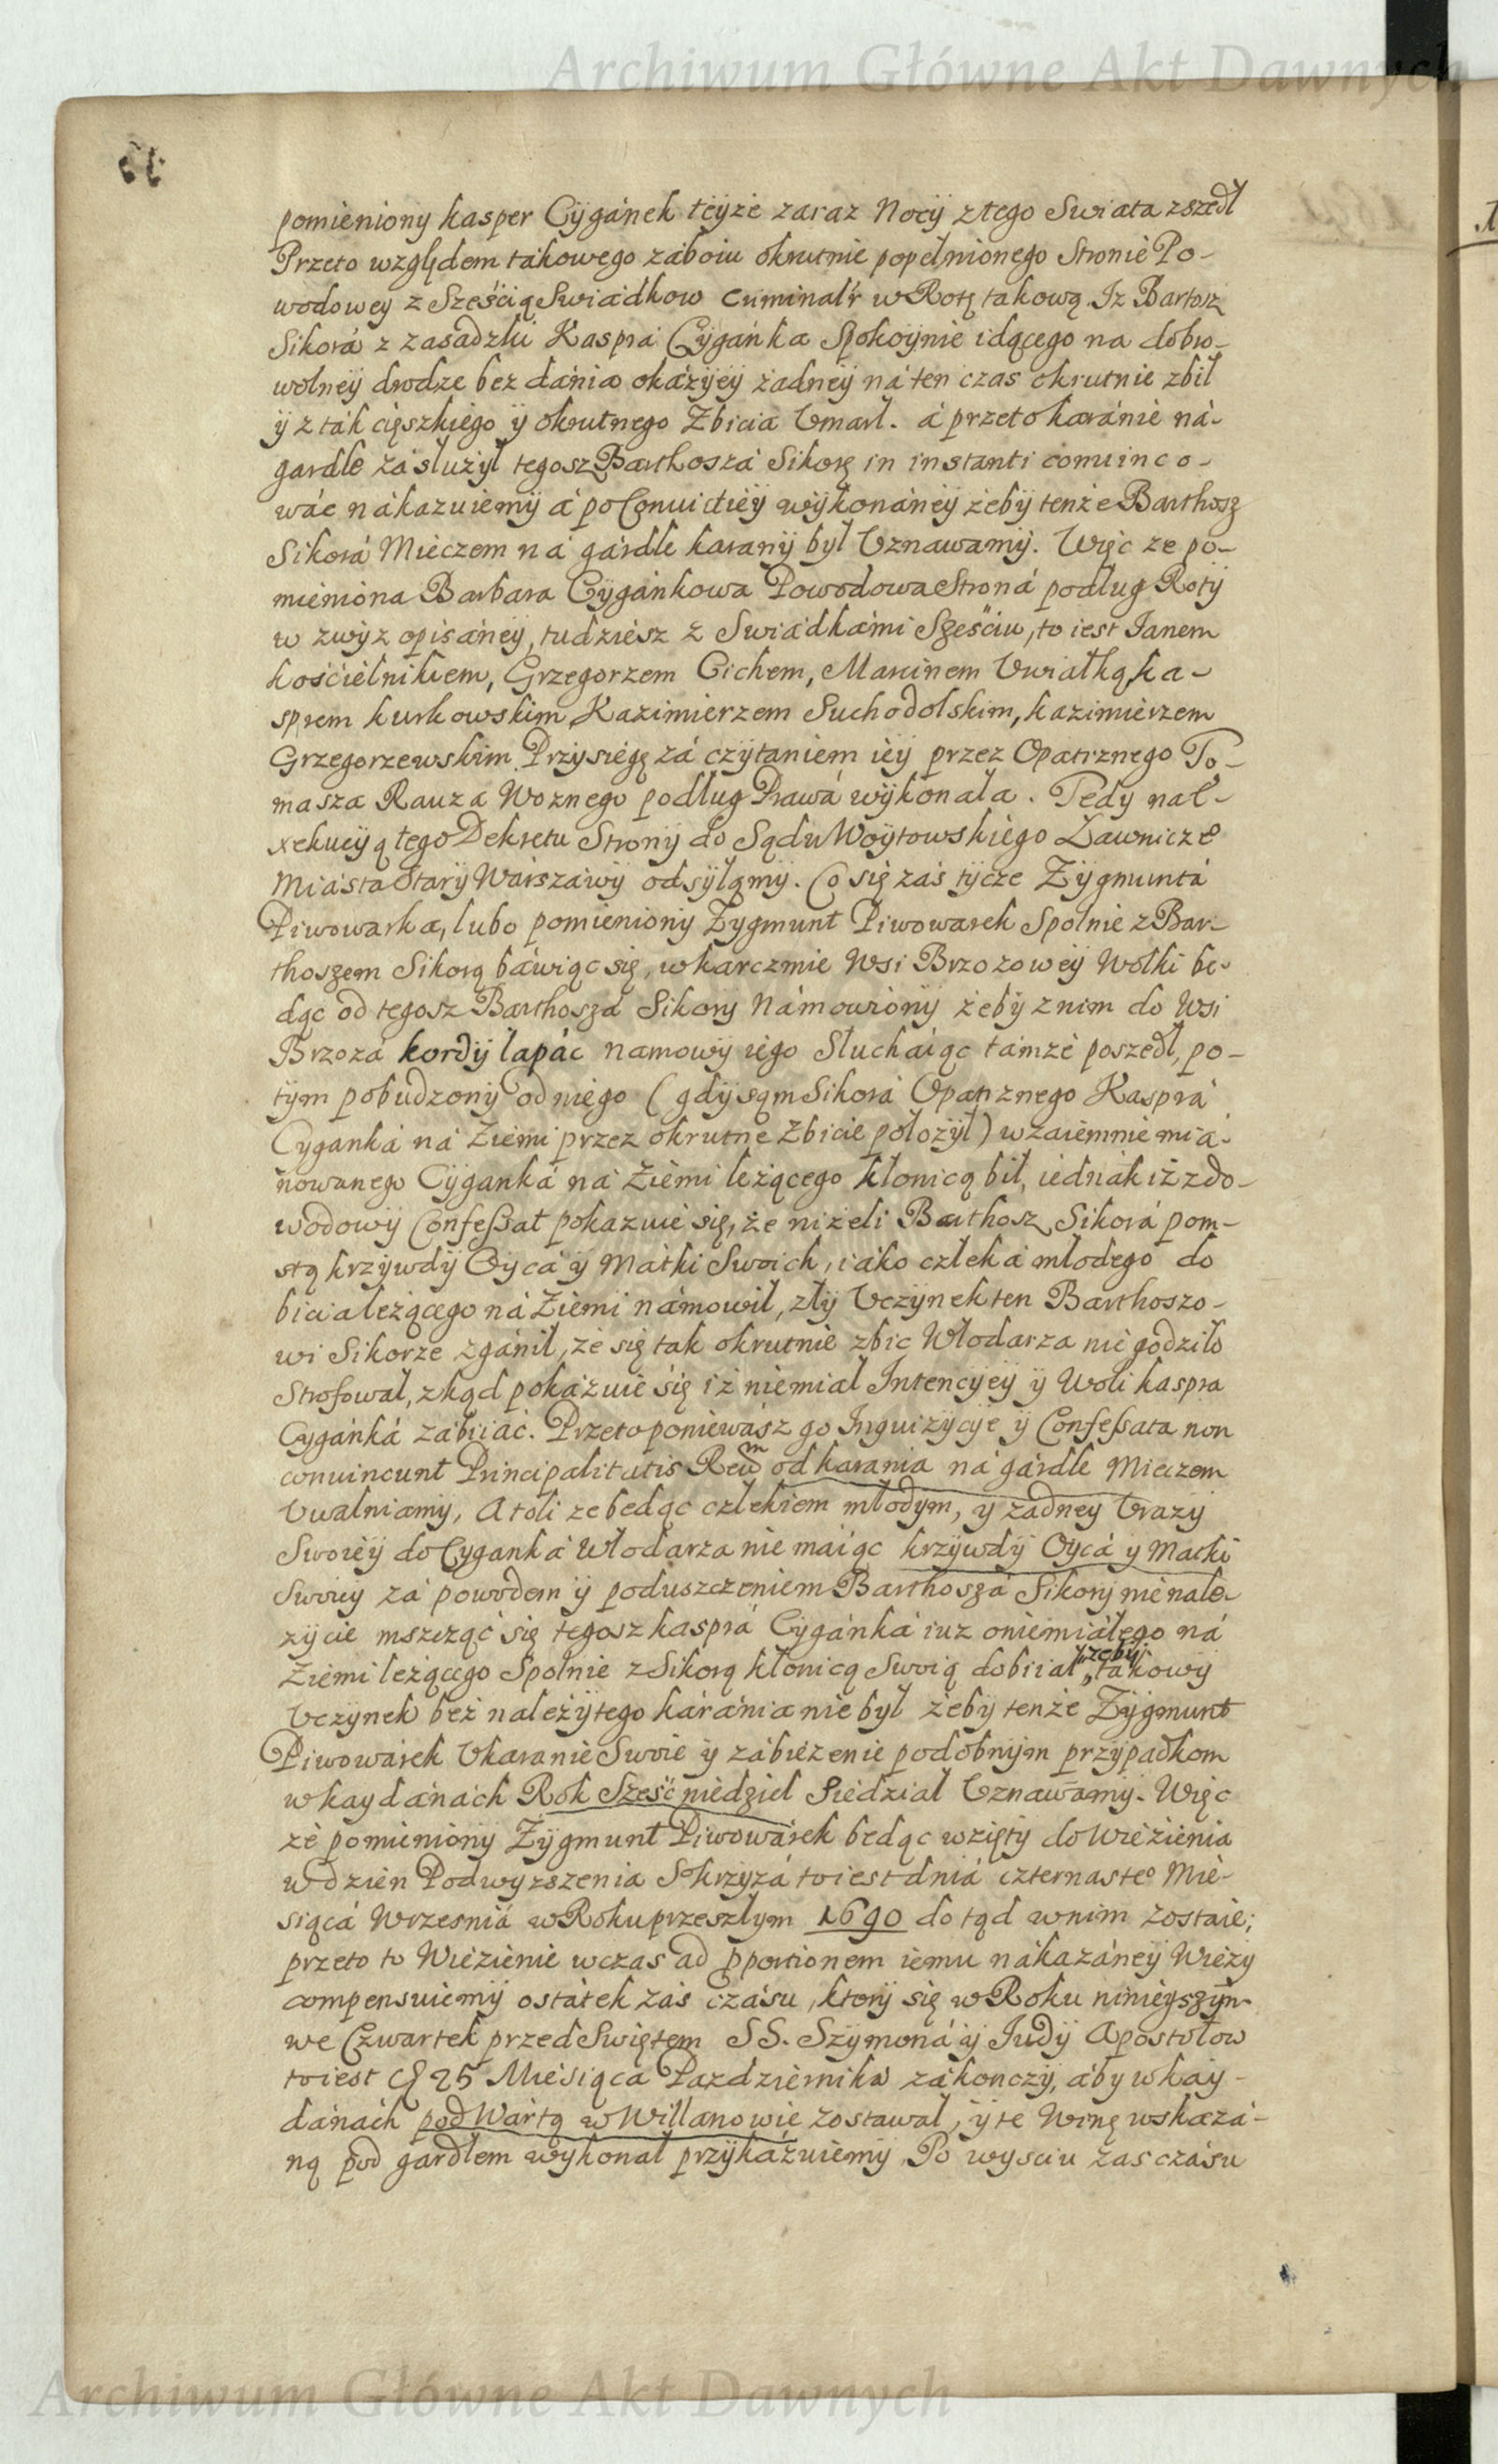 Archiwum Główne Akt Dawnych
pomieniony kasper Cÿgánek teÿże zaraz Nocÿ z tego Swiata zszedł
Przeto względem tákowego zaboiu okrutnie popełnionego Stronie Po-
wodoweÿ z Sześcią Swiádkow Criminalr w Rotę takową. Iz Bartosz
Sikorá z zasadzki Kasprá Cÿgańka Spokoÿnie idącego na dobro-
wolneÿ drodze bez dánia okázÿeÿ żadneÿ ná ten czas okrutnie zbił
ÿ z ták cięszkiego ÿ okrutnego Zbicia Vmarł. á przeto karánie ná-
gardle zásłużÿł tegosz Barthoszá Sikorę in instanti conuinco-
wác nákazuiemÿ á po Conuictieÿ wÿkonáneÿ żebÿ tenże Barthosz
Sikorá Mieczem ná gárdle karanÿ bÿł Vznawamÿ. Więc ze po-
mieniona Barbara Cÿgánkowa Powodowa Stroná podług Rotÿ
w zwÿz opisáneÿ, tudziesz z Swiádkámi Sześciu, to iest Ianem
kościelnikiem, Grzegorzem Cichem, Marcinem Vwiałką, ka-
sprem kurkowskim, Kazimierzem Suchodolskim, kazimierzem
Grzegorzewskim Przÿsięgę zá czÿtaniem ieÿ przez Opatrznego To-
masza Rauza Woznego podług Prawá wÿkonała. Tedy na e-
xekucÿą tego Dekretu Stronÿ do Sądu Woÿtowskiego Ławnicze
Miástá Starÿ Wárszáwÿ odsÿłąmÿ. Co się záś tÿcze Zÿgmuntá
Piwowarka, lubo pomienionÿ Zygmunt Piwowarek Spolnie z Bar-
thoszem Sikorą báwiąc się, w karczmie Wsi Brzozoweÿ Wolki bę-
dąc od tegosz Barthoszá Sikorÿ Námowionÿ żebÿ z nim do Wsi
Brzozá kordÿ łapác namowÿ iego Słucháiąc támże poszedł, po-
tÿm pobudzonÿ od niego (gdÿ sąm Sikorá Opatrznego Kasprá
Cÿganká ná Ziemi przez okrutne Zbicie położÿł) wzaiemnie miá-
nowanego Cÿganká ná Ziemi leżącego kłonicą bił, iednák iż z do-
wodowÿ Confeßat pokazuie się, że niżeli Barthosz Sikorá pom-
stą krzÿwdÿ Oÿcá ÿ Mátki Swoich, iáko człeká młodego do
bicia leżącego ná Ziemi námowił, złÿ Vczÿnek ten Barthoszo-
wi Sikorze zgánił, że się tak okrutnie zbic Włodarza nie godziło
Strofował, zkąd pokázuie się iż niemiał Intencÿeÿ ÿ Woli kaspra
Cÿgánká zábiiác. Przeto poniewász go Inquizÿcÿe ÿ Confeßata non
conuincunt Principalitatis Reum od karania ná gárdle Mieczem
Vwalniamÿ, Atoli ze będąc człekiem młodym, ÿ żadneÿ Vrazÿ
Swoieÿ do Cÿganká Włodarza nie máiąc krzÿwdÿ Oÿcá ÿ Matki
Swoieÿ zá powodem ÿ poduszczeniem Barthoszá Sikorÿ nienale-
żÿcie mszcząc się tegosz kasprá Cÿgánká iuz oniemiáłego ná
Ziemi leżącego Spolnie z Sikorą kłonicą Swoią dobiiał, żebÿ takowÿ
Vczÿnek bez należÿtego káránia nie bÿł żebÿ tenże Zÿgmunt
Piwowárek Vkaranie Swoie ÿ zábieżenie podobnÿm przÿpadkom
w kaydánách Rok Sześć niedziel Siedział Vznawamÿ. Więc
że pomienionÿ Zÿgmunt Piwowárek będąc wziętÿ do Więzienia
w dzien Podwyzszenia S. krzÿżá to iest dniá czternaste Mie-
siącá Wrzesniá w Roku przeszłym 1690 dotąd w nim zostáie;
przeto to Więzienie wczas ad pportionem iemu nákazáneÿ Wieżÿ
compensuiemÿ ostátek záś czásu, ktorÿ się w Roku ninieÿszÿm
we Czwartek przed Swiętem SS. Szÿmoná ÿ Iudÿ Apostołow
to iest 25 Miesiąca Pazdzierniká zákonczÿ, áby w kaÿ-
dánách pod Wártą w Willanowie zostawał, ÿ te Winę wskazá-
ną pod gardłem wykonał przÿkázuiemÿ Po wysciu zas czásu
Archiwum Główne Akt Dawnych